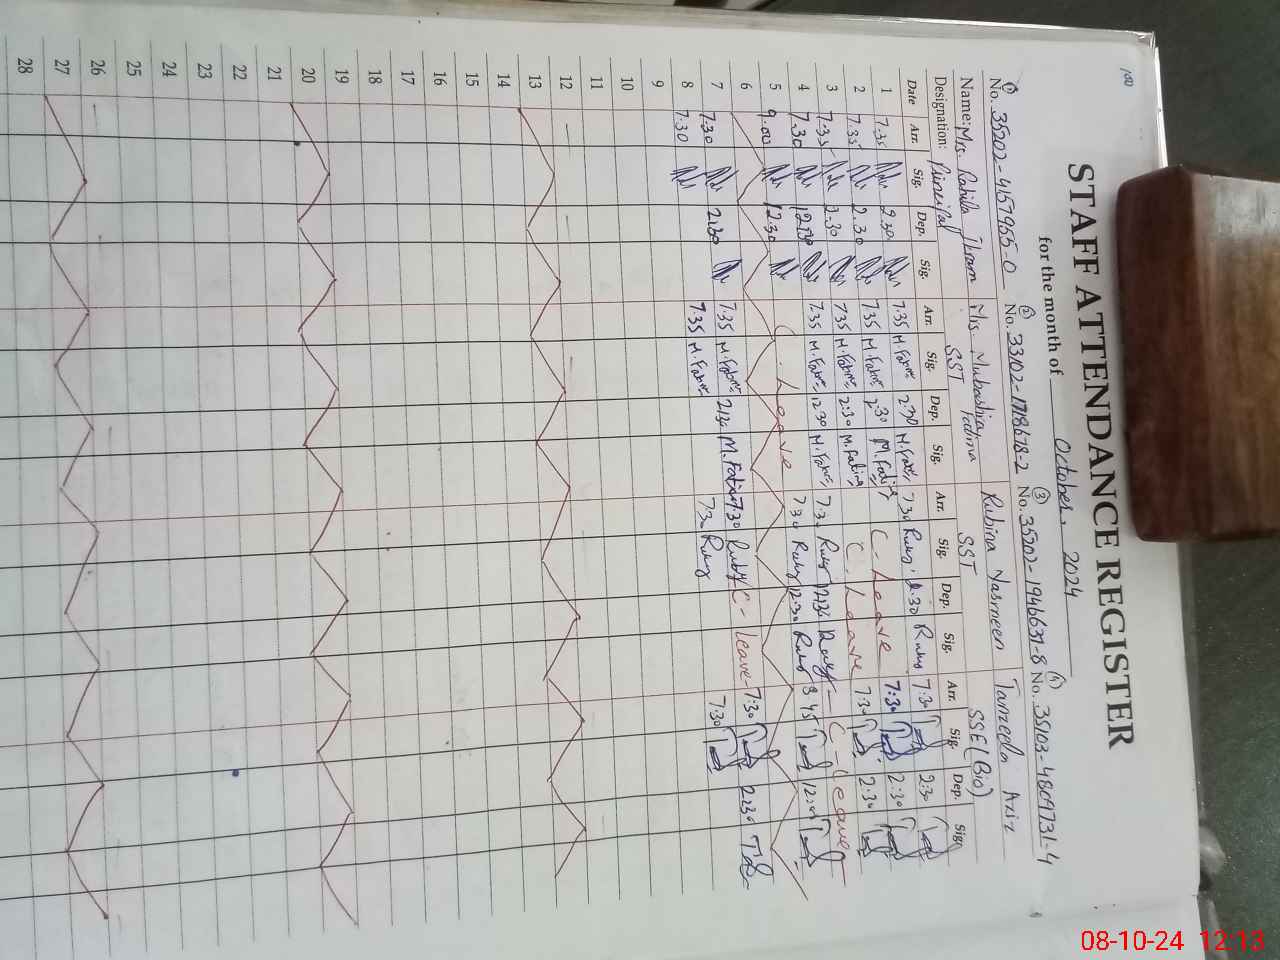 STAFF ATTENDANCE REGISTER
for the month of October, 2024
① No. 35202-4157955-0 ② No. 33102-1718678-2 ③ No. 35202-1946631-8 ④ No. 35103-4809731-4
Name: Mrs. Rahila Ikram Mrs. Mubashia Fatima Rubina Yasmeen Tanzeela Aziz
Designation: Principal SST SST SSE (Bio)
Date Arr. Sig. Dep. Sig. Arr. Sig. Dep. Sig. Arr. Sig. Dep. Sig. Arr. Sig. Dep. Sig.
1 7.35 2.30 7.35 M.Fatima 2.30 M.Fatima 7.30 Ruby 2.30 Ruby 7:30 2:30
2 7.35 2.30 7.35 M.Fatima 2.30 M.Fatima C. Leave 7:30 2:30
3 7.35 2.30 7.35 M.Fatima 2:30 M.Fatima C. Leave 7:30 2:30
4 7.30 12.30 7.35 M.Fatima 12.30 M.Fatima 7.30 Ruby 12.30 Ruby C-leave
5 9.00 12.30 C. Leave 7.30 Ruby 12.30 Ruby 8:45
6
7 7.30 2.30 7.35 M.Fatima 2:30 M.Fatima 7.30 Ruby C-leave 7:30 2:30
8 7.30 7.35 M.Fatima 7.30 Ruby 7:30
9
10
11
12
13
14
15
16
17
18
19
20
21
22
23
24
25
26
27
28
08-10-24 12:13